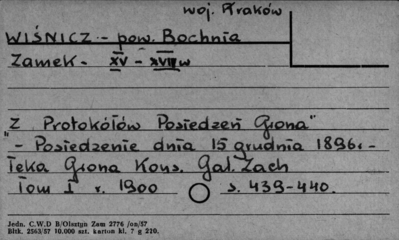 woj. Kraków
WIŚNICZ - pow. Bochnia
Zamek - XV - XVII w
"Z Protokółów Posiedzeń Grona"
- Posiedzenie dnia 15 grudnia 1896. -
Teka Grona Kons. Gal. Zach
Tom I r. 1900 s. 439-440.
Jedn. C.W.D B/Olsztyn Zam 2776 /on/57
Bltk. 2563/57 10.000 szt. karton kl. 7 g 220.